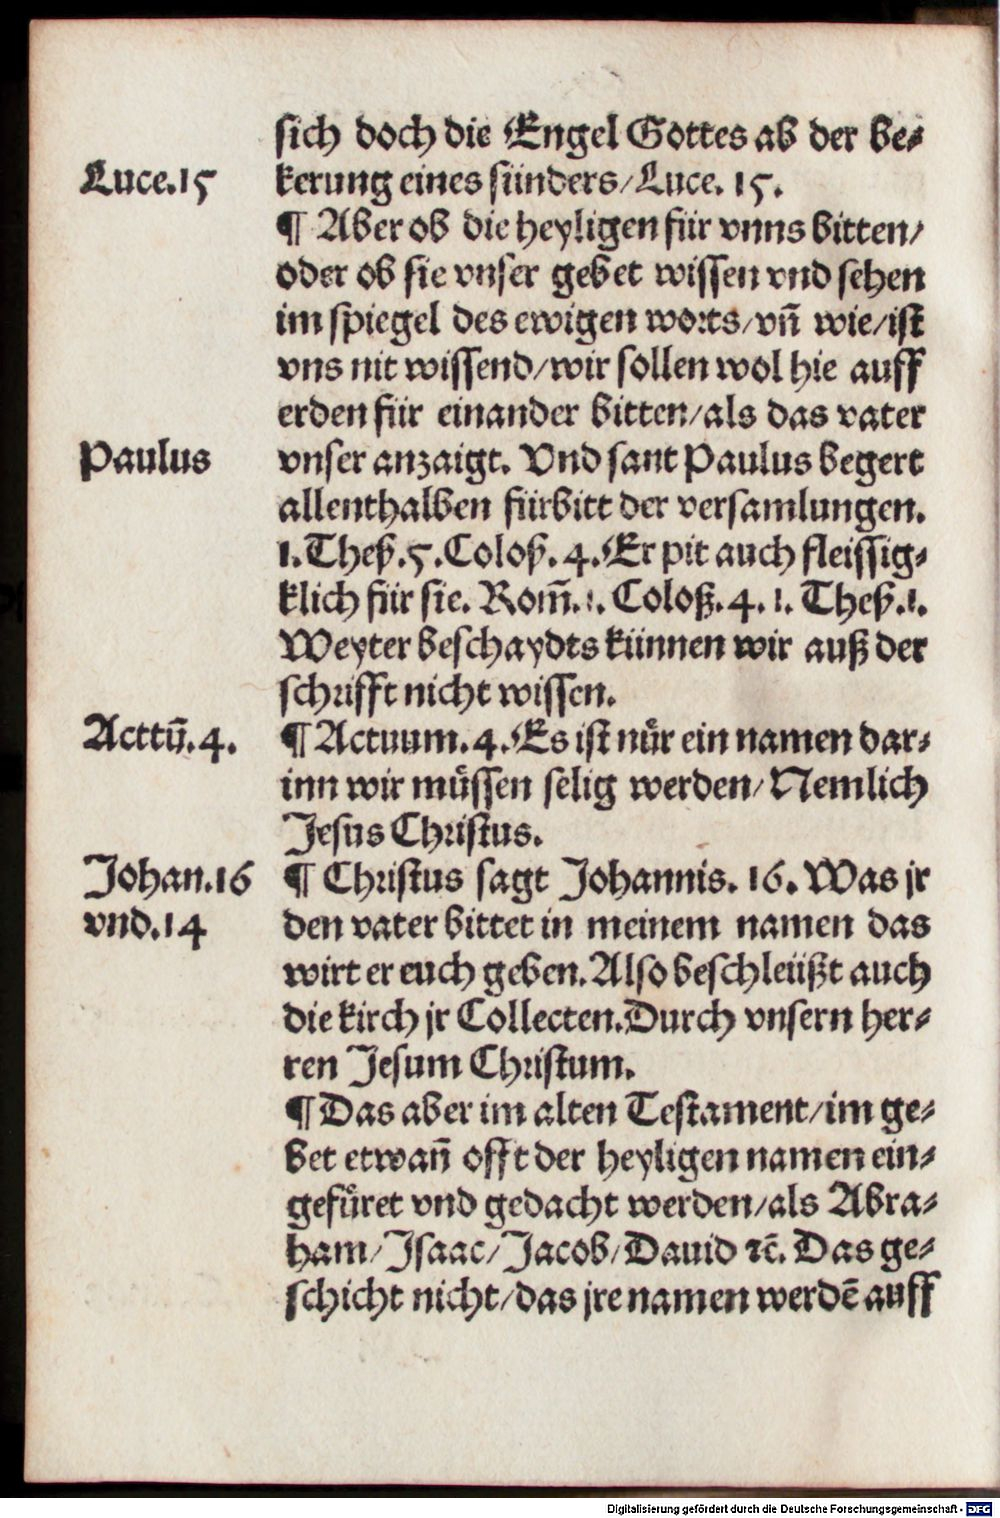 sich doch die Engel Gottes ab der be⸗
Luce.15
kerung eines sünders/Luce. 15.
¶ Aber ob die heyligen für vnns bitten/
oder ob sie vnser gebet wissen vnd sehen
im spiegel des ewigen worts/vñ wie/ist
vns nit wissend/wir sollen wol hie auff
erden für einander bitten/als das vater
Paulus
vnser anzaigt. Vnd sant Paulus begert
allenthalben fürbitt der versamlungen.
1.Theß.5.Coloß.4.Er pit auch fleissig⸗
klich für sie. Rom̃.1. Coloß.4. 1. Theß.1.
Weyter beschaydts künnen wir auß der
schrifft nicht wissen.
Acttũ.4.
¶ Actuum.4.Es ist nůr ein namen dar⸗
inn wir müssen selig werden/Nemlich
Jesus Christus.
Johan.16
¶ Christus sagt Johannis. 16. Was jr
vnd.14
den vater bittet in meinem namen das
wirt er euch geben. Also beschleüßt auch
die kirch jr Collecten.Durch vnsern her⸗
ren Jesum Christum.
¶ Das aber im alten Testament/im ge⸗
bet etwañ offt der heyligen namen ein⸗
gefüret vnd gedacht werden/als Abra⸗
ham/Isaac/Jacob/Dauid ꝛc̃. Das ge⸗
schicht nicht/das jre namen werdẽ auff
Digitalisierung gefördert durch die Deutsche Forschungsgemeinschaft - DFG